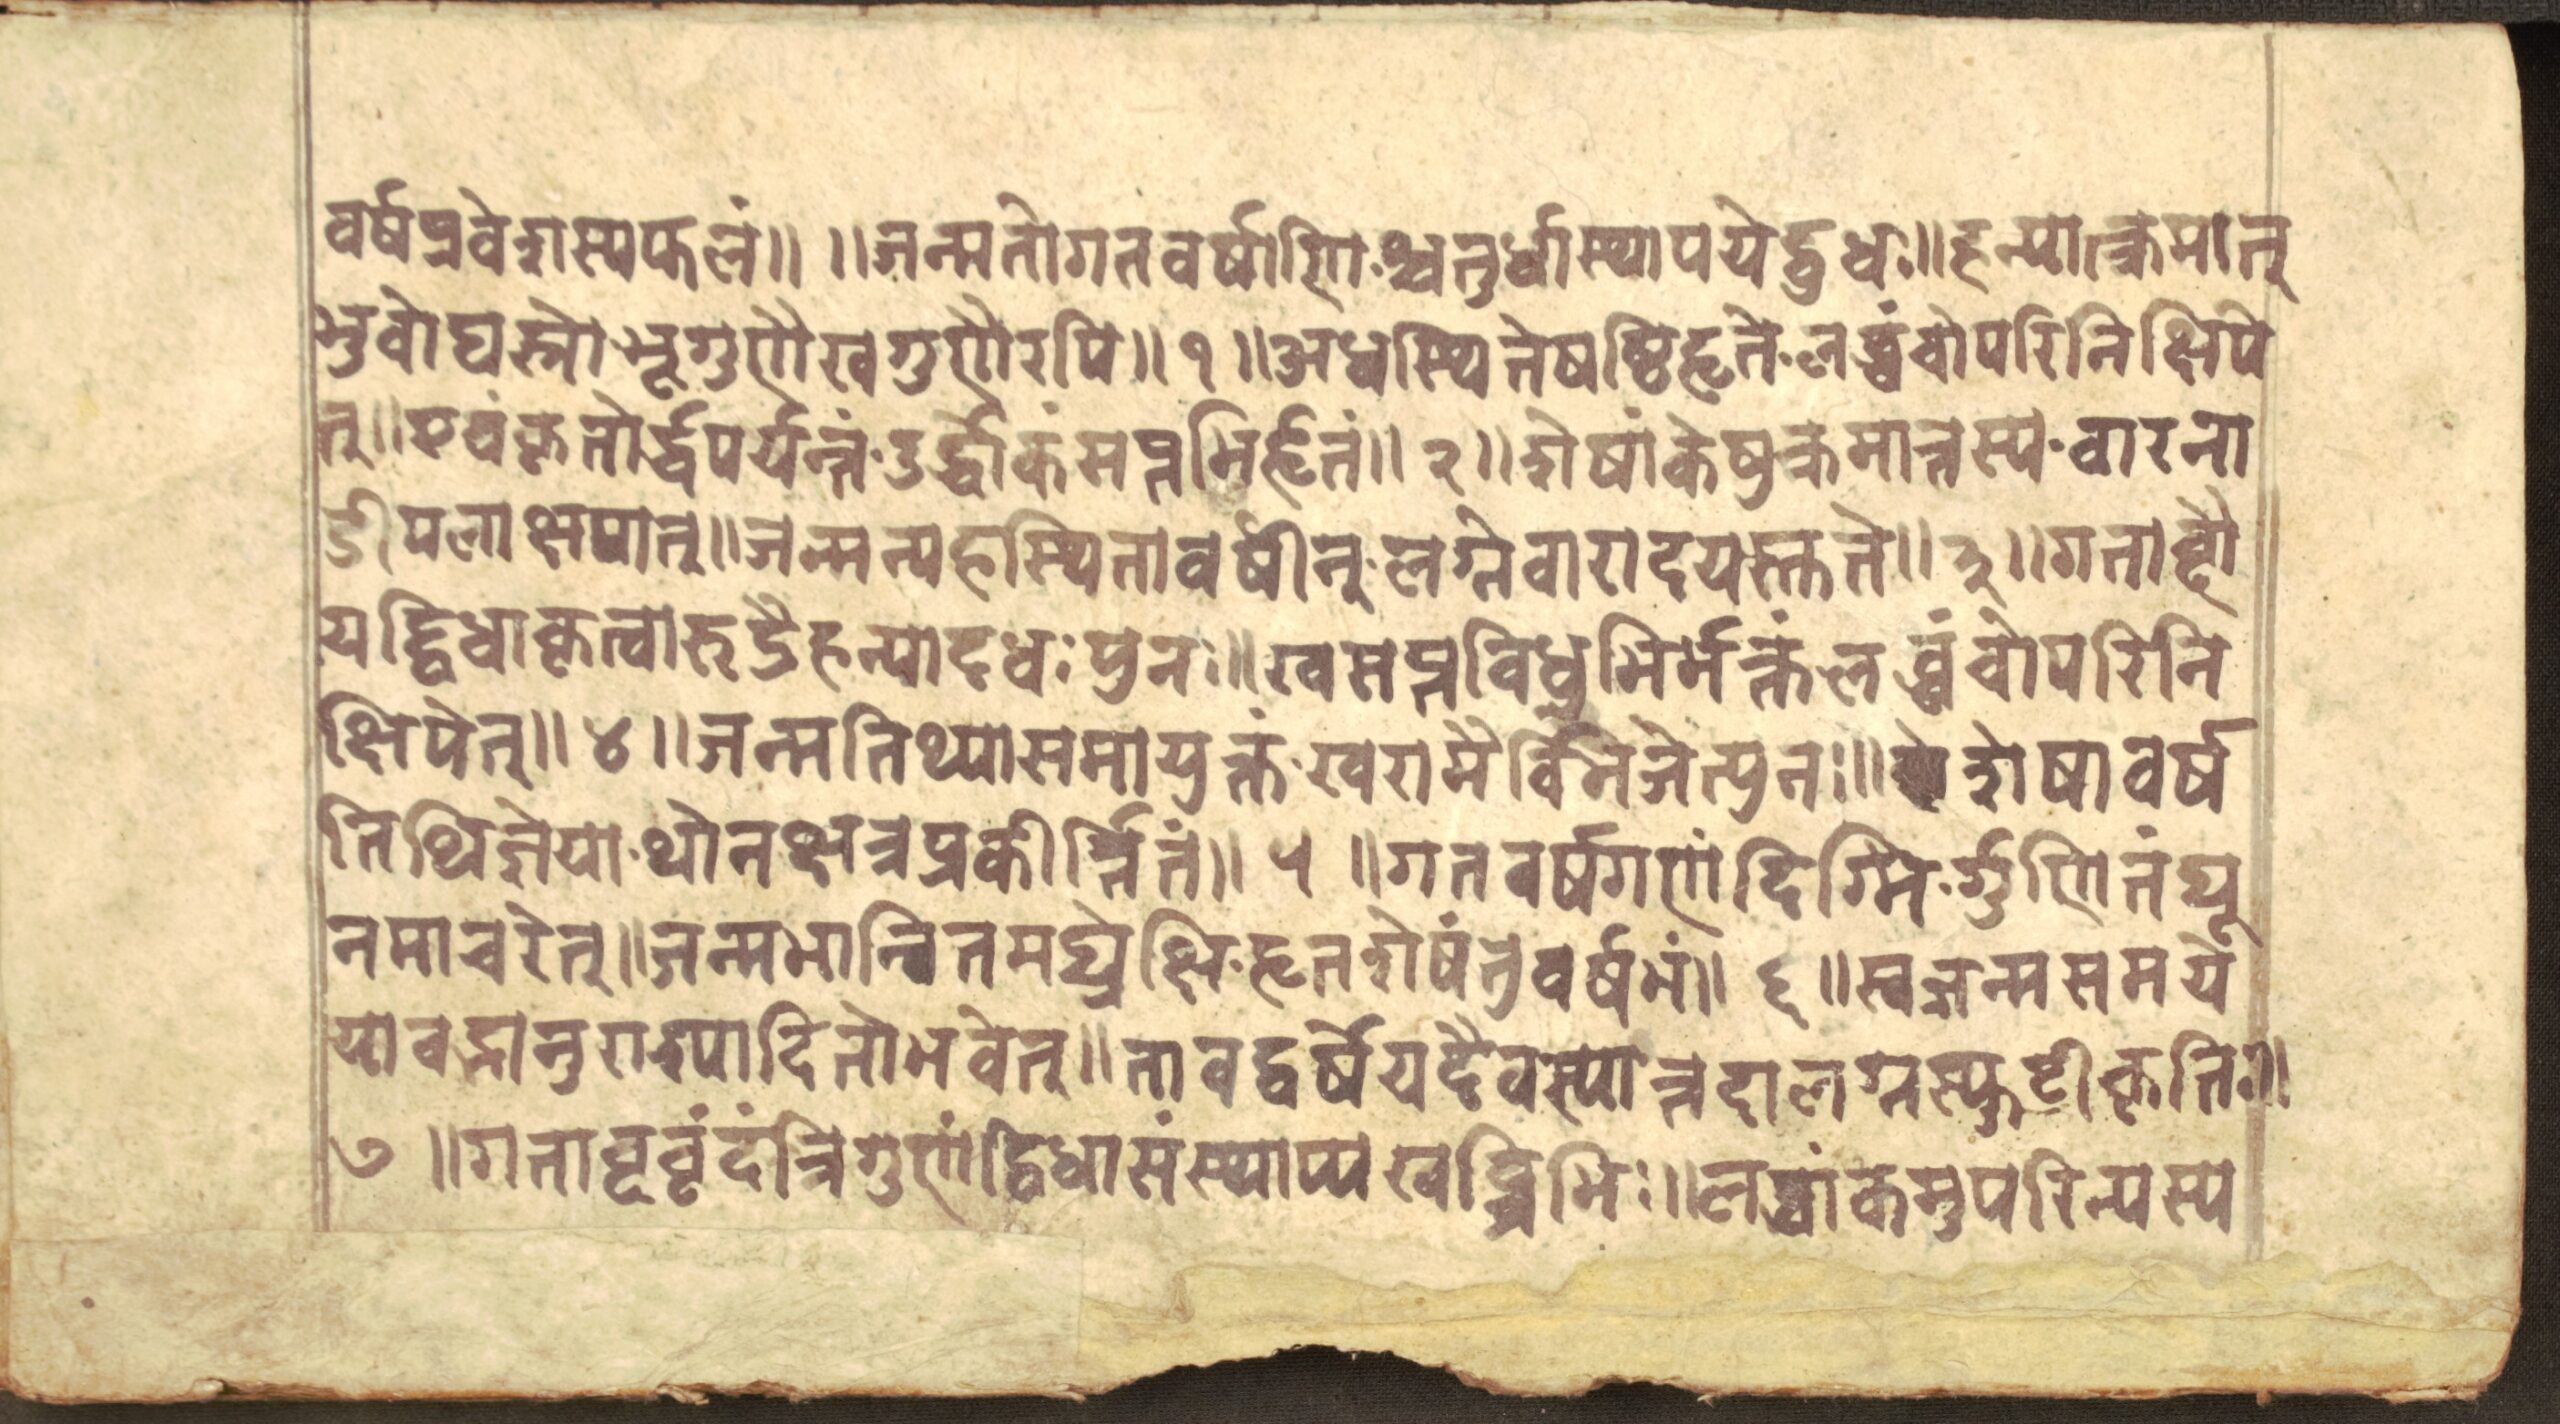 वर्षप्रवेशस्यफलं॥ ॥जन्मतोगतवर्षाणि·श्चतुर्धास्थापयेद्बुधः॥हन्यात्क्रमात्
भुवोघस्रो भूगुणौखगुणौरपि॥१॥अधस्थितेषष्ठिहृते·लब्धंचोपरिनिक्षिपे
त्॥एवंकृतोर्द्धपर्यन्तं·उर्द्धांकंसप्तभिर्हृतं॥२॥शेषांकेषुक्रमात्तस्य·वारना
डीपलाक्षपात्॥जन्मन्यहास्थितावर्षान्·लग्नेवारादयस्तते॥३॥गताब्दौ
यद्द्विधाकृत्वारुद्रैहन्यादधःपुनः॥खसप्तविधुभिर्भक्तंलब्धंचोपरिनि
क्षिपेत्॥४॥जन्मतिथ्यासमायुक्तं·खरामैर्विभजेत्पुनः॥शेषावर्ष
तिथिज्ञेया·थोनक्षत्रप्रकीर्त्तितं॥५॥गतवर्षगणंदिग्भि·र्गुणितंद्यू
नमाचरेत्॥जन्मभान्वितमर्घ्रेक्षि·हृतशेषंतुवर्षभं॥६॥स्वजन्मसमये
यावद्भानुराश्यादितोभवेत्॥तावद्वर्षेयदैवस्यात्तदालग्नस्फुटीकृतिः॥
७॥गताब्दवृंदंत्रिगुणंद्विधासंस्थाप्यखद्वित्रिभिः॥लब्धांकमुपरिन्यस्य